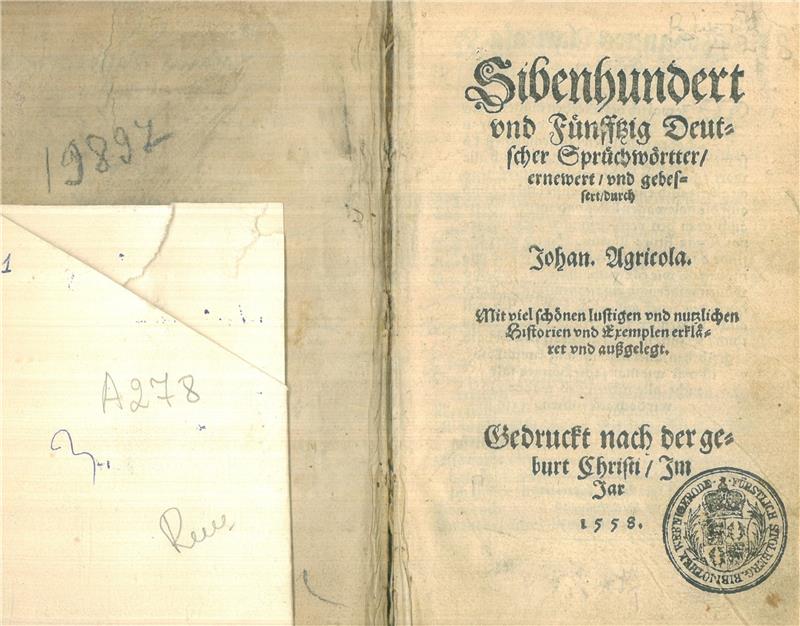 19892
1
A278
Sibenhundert
vnd Fünfftzig Deut-
scher Sprüchwörtter/
ernewert/vnd gebes-
sert/durch
Johan. Agricola.
Mit viel schönen lustigen vnd nutzlichen
Historien vnd Exemplen erklä-
ret vnd außgelegt.
Gedruckt nach der ge-
burt Christi/Im
Jar
1558.
FÜRSTLICH STOLBERG. BIBLIOTHEK WERNIGERODE